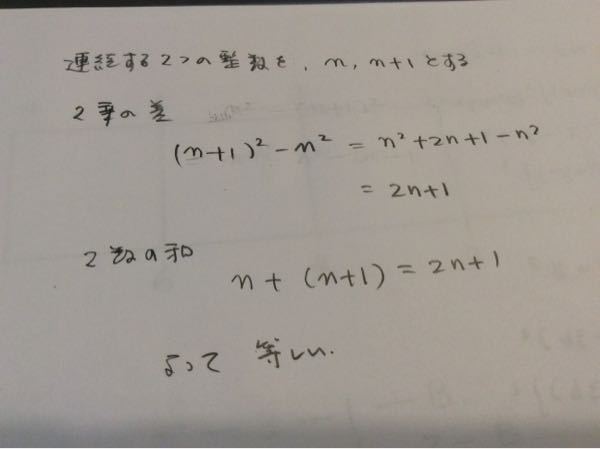 連続する2つの整数を、n, n+1とする
2乗の差
(n+1)² − n² = n² + 2n + 1 − n²
= 2n+1
2数の和
n + (n+1) = 2n+1
よって 等しい.